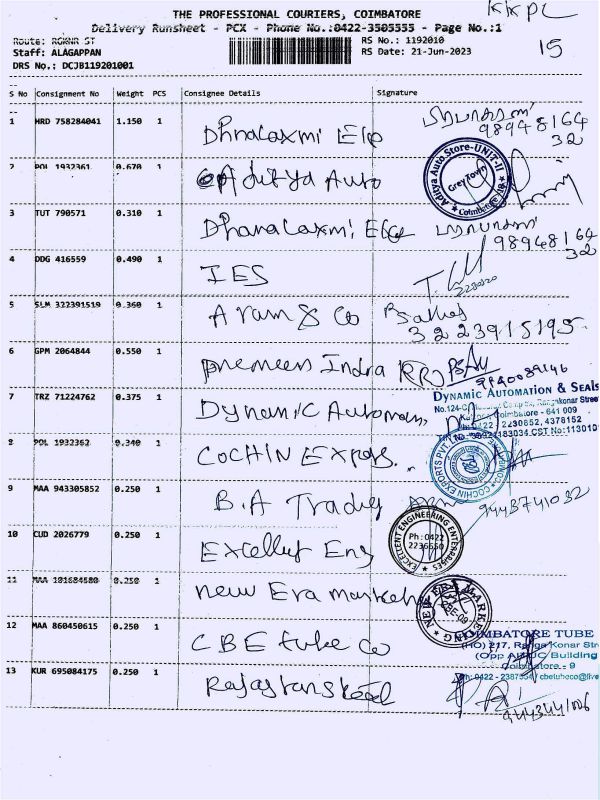 KKPL
THE PROFESSIONAL COURIERS, COIMBATORE
Delivery Runsheet - PCX - Phone No.:0422-3505555 - Page No.:1
Route: RGKNR ST
RS No.: 1192010
15
Staff: ALAGAPPAN
RS Date: 21-Jun-2023
DRS No.: DCJB119201001
S No Consignment No Weight PCS Consignee Details Signature
1 HRD 758284041 1.150 1 Dhnalaxmi Ele 98948164
32
2 POL 1932361 0.670 1 Aditya Auto
Aditya Auto Store-UNIT-II
Grey Town
Coimbatore
3 TUT 790571 0.310 1 Dhanalaxmi Ele 98948164
32
4 DDG 416559 0.490 1 IES
5 SLM 322391519 0.360 1 Aram & Co
3223915195
6 GPM 2064844 0.550 1 Indra
7 TRZ 71224762 0.375 1 Dynamic Automan
DYNAMIC AUTOMATION & SEALS
No.124- Rangakonar Street
Coimbatore - 641 009
0422 2230852, 4378152
183034 CST No:113010
8 POL 1932362 0.340 1 Cochin Expors.
COCHIN EXPORTS PVT
COIMBATORE
9 MAA 943305852 0.250 1 B.A Trading
9443741032
10 CUD 2026779 0.250 1 Excellent Eng
EXCELLENT ENGINEERING ENTERPRISES
Ph : 0422
2236550
11 MAA 101684580 0.250 1 New Era marketing
NEW ERA MARKETING
CBE-09
12 MAA 860450615 0.250 1 CBE tube Co
COIMBATORE TUBE
(HO) 217, Ranga Konar Str
(Opp Building
Coimbatore - 9
Ph: 0422 - 238755 / cbetubeco@live
13 KUR 695084175 0.250 1 Rajastan Steel